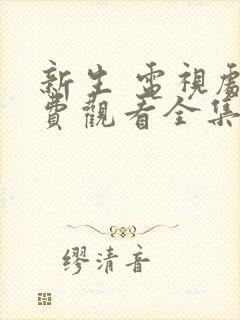 新生 電視劇
費觀看全集
缪清音